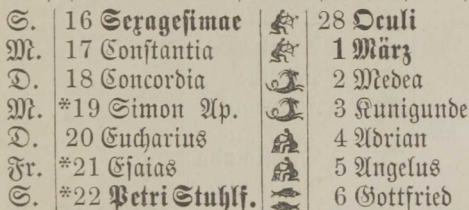 S. 16 Sexagesimae 28 Oculi
M. 17 Constantia 1 März
D. 18 Concordia 2 Medea
M. *19 Simon Ap. 3 Kunigunde
D. 20 Eucharius 4 Adrian
Fr. *21 Esaias 5 Angelus
S. *22 Petri Stuhlf. 6 Gottfried